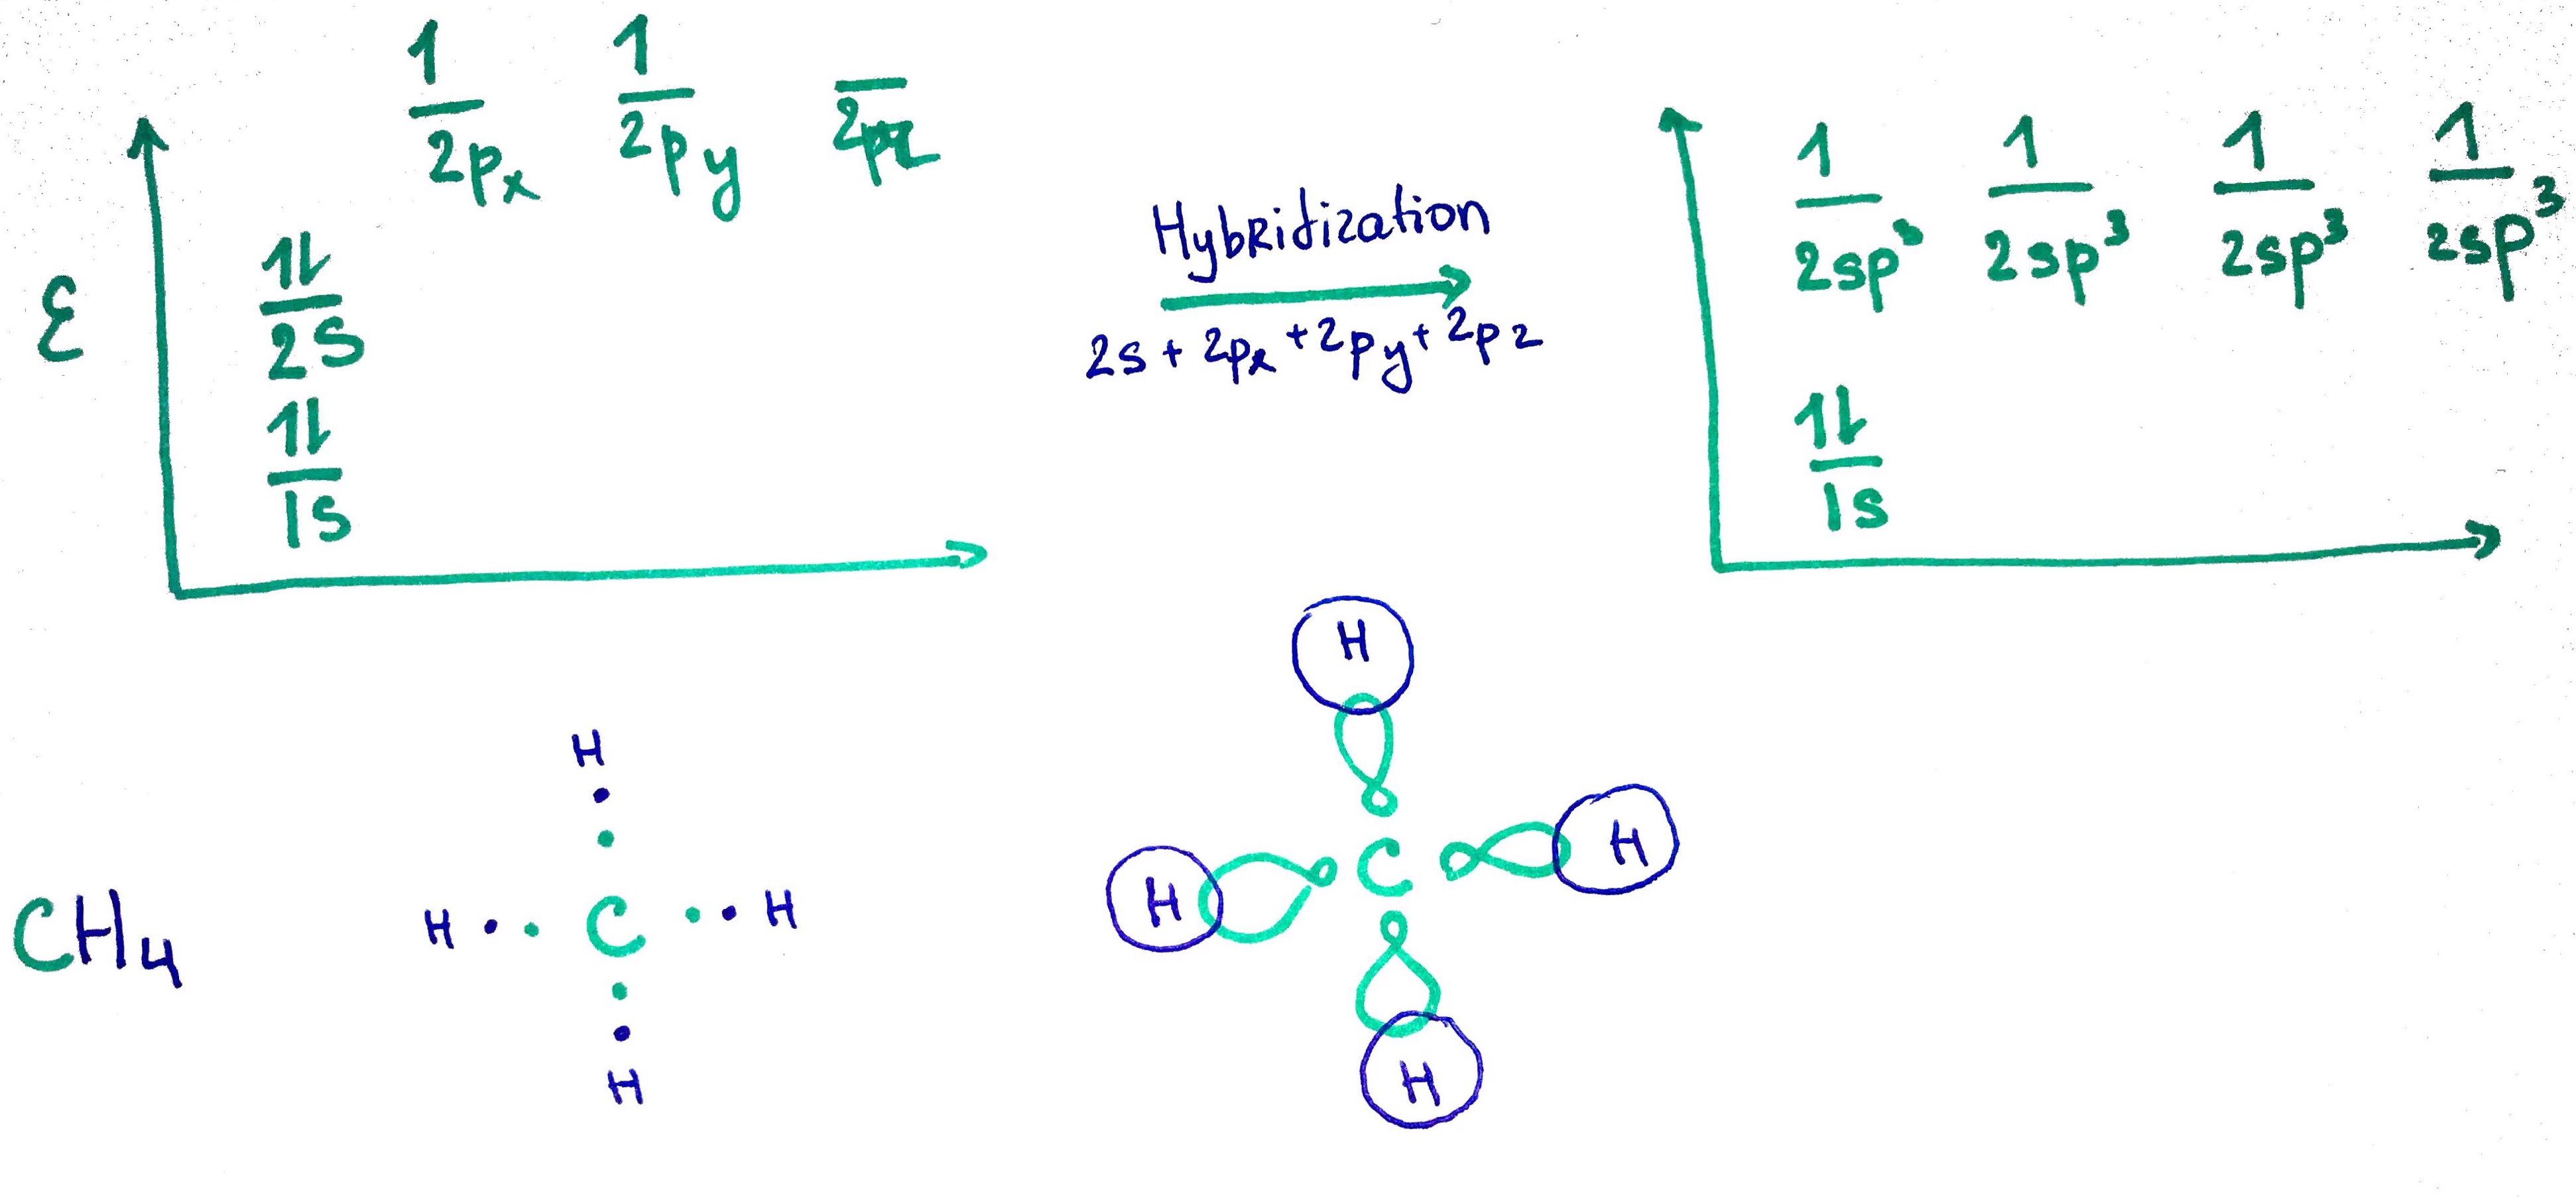 1 1
2px 2py 2pz
1⇂
2s
1⇂
1s
ε
Hybridization
2s + 2px + 2py + 2pz
1 1 1 1
2sp³ 2sp³ 2sp³ 2sp³
1⇂
1s
CH4
H
H · · C · · H
H
H
H C H
H